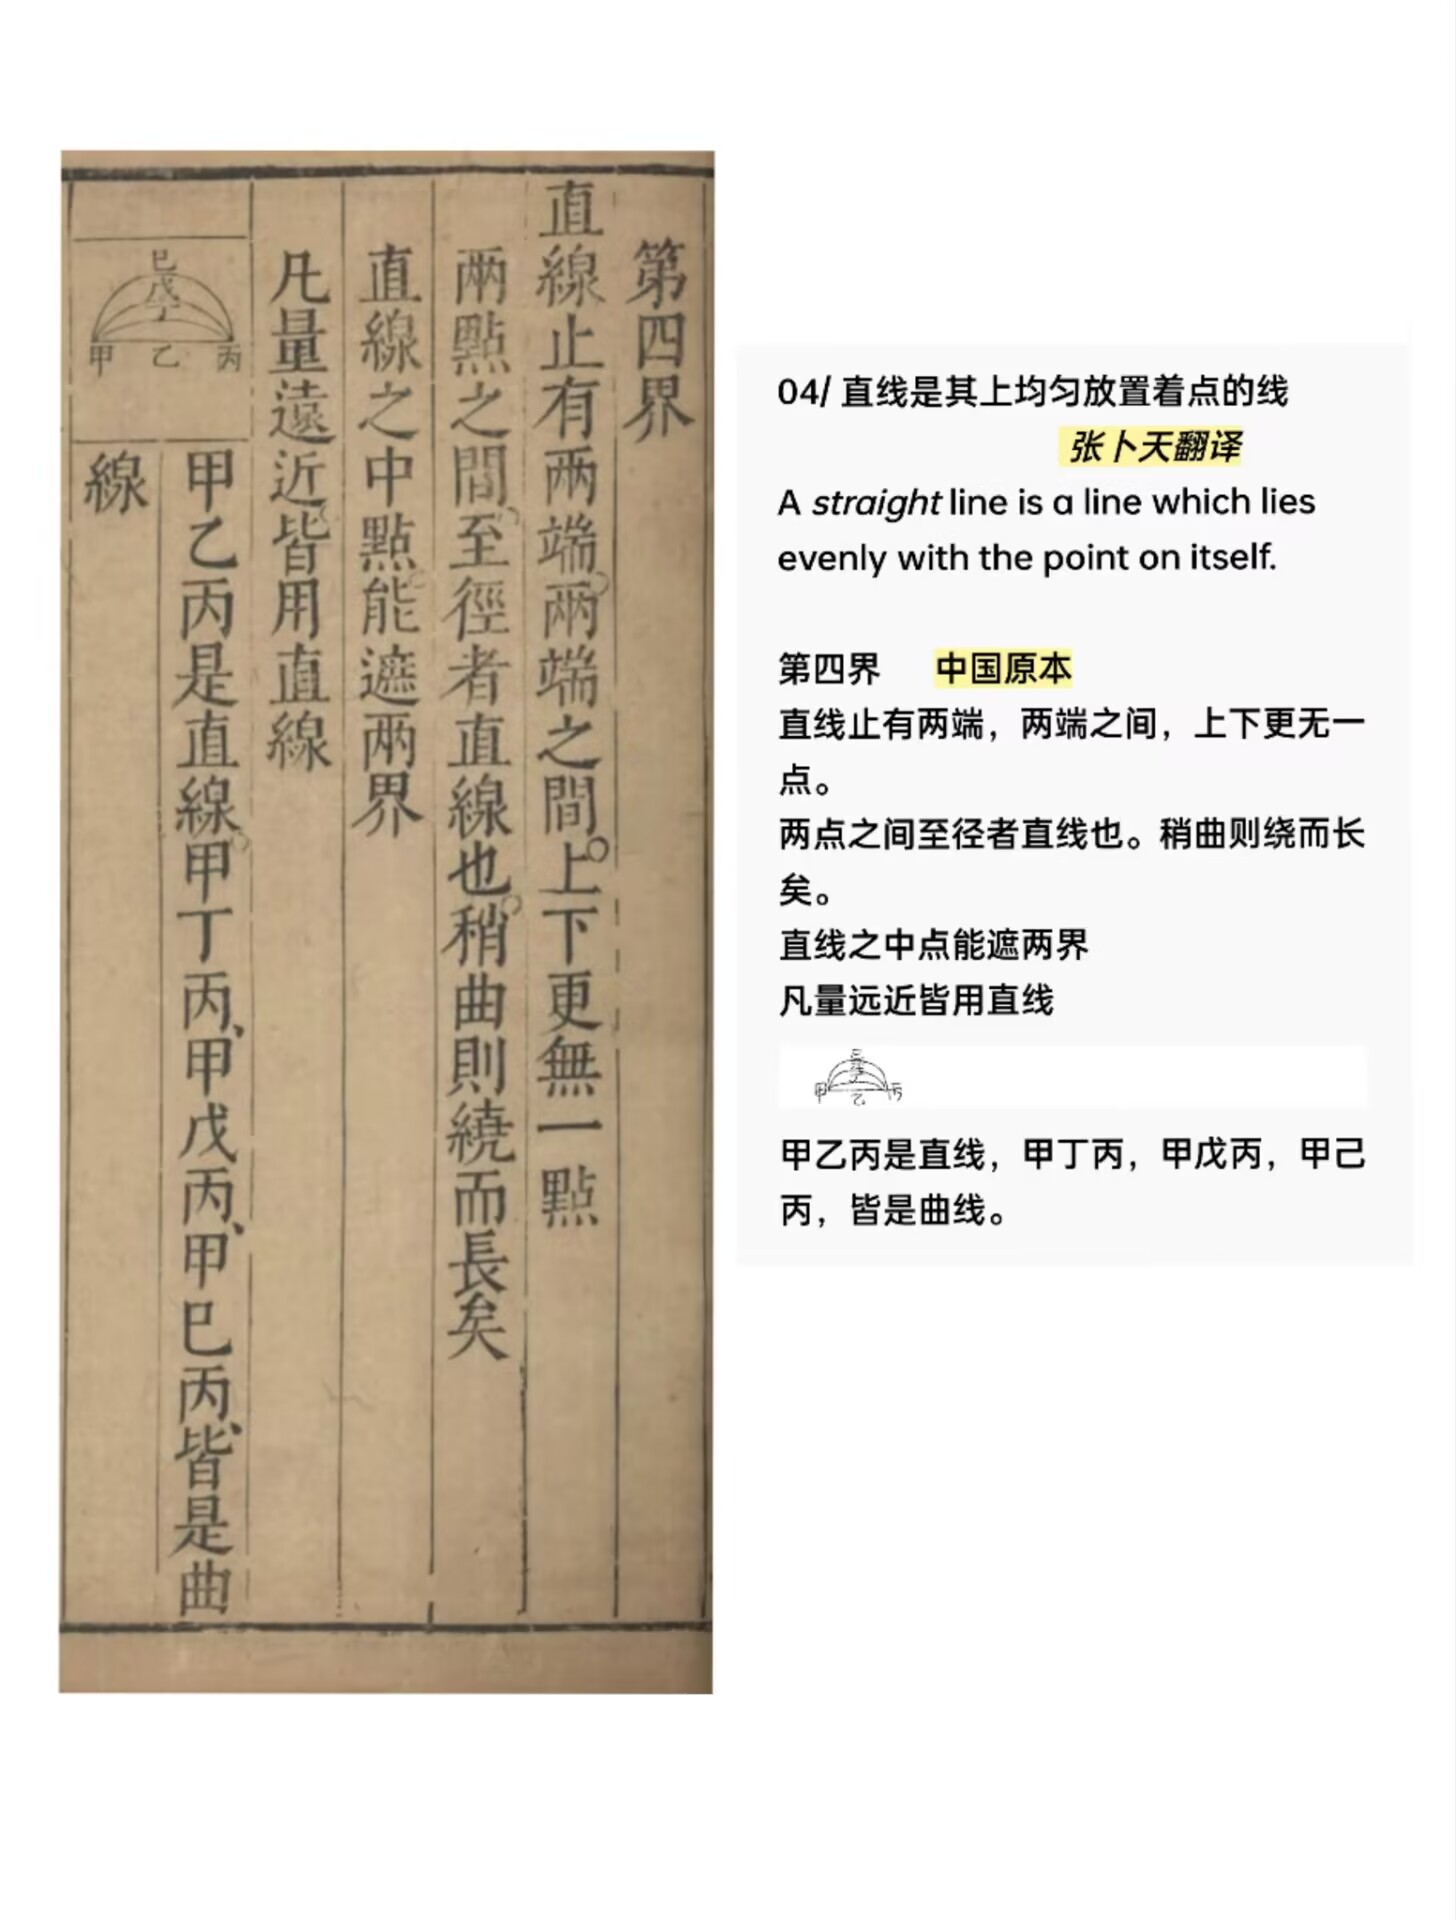 第四界
直線止有兩端兩端之間。上下更無一點
兩點之間至徑者直線也稍曲則繞而長矣
直線之中點能遮兩界
凡量遠近皆用直線
巳
戊
丁
甲 乙 丙
甲乙丙是直線甲丁丙、甲戊丙、甲巳丙、皆是曲
線
04/ 直线是其上均匀放置着点的线
张卜天翻译
A straight line is a line which lies
evenly with the point on itself.
第四界 中国原本
直线止有两端，两端之间，上下更无一
点。
两点之间至径者直线也。稍曲则绕而长
矣。
直线之中点能遮两界
凡量远近皆用直线
甲 乙 丙
甲乙丙是直线，甲丁丙，甲戊丙，甲己
丙，皆是曲线。